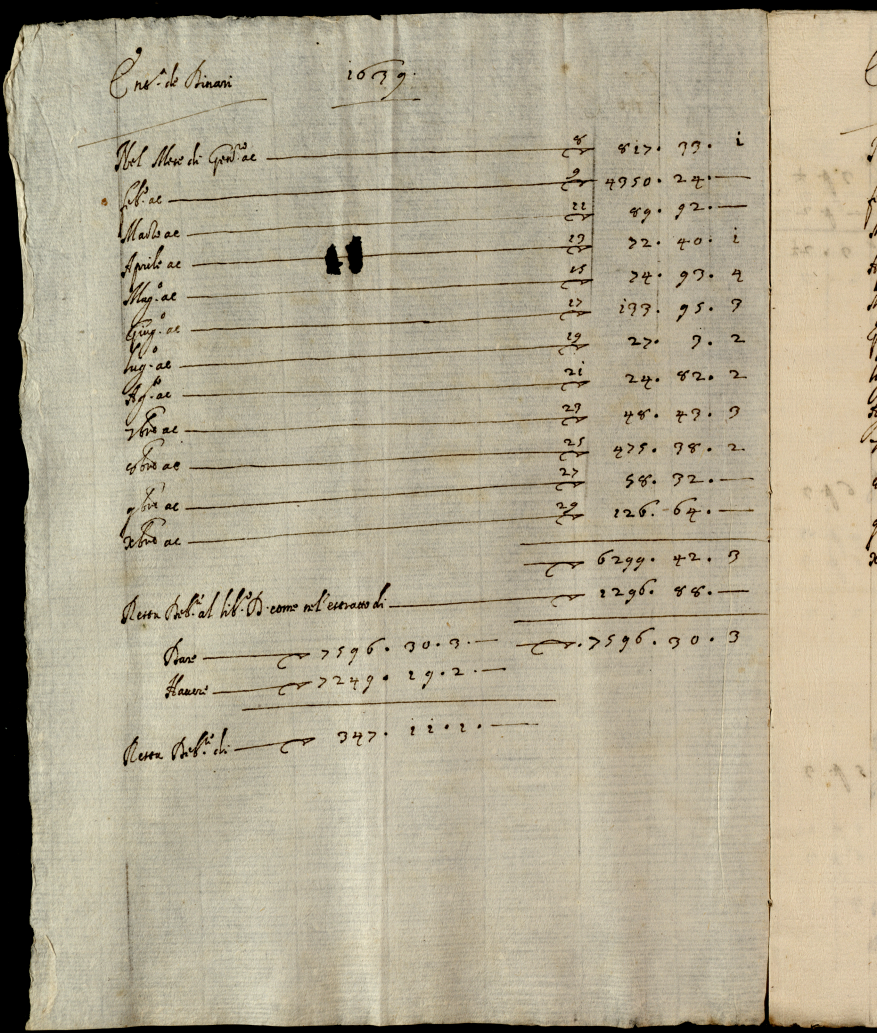 Ent.ª de Dinari 1639.
Nel Mese di Gen.ro ac 8 817. 33. i
feb.o ac 9 4350. 24. —
Marzo ac 11 89. 92. —
Aprile ac 13 72. 40. i
Mag.o ac 15 74. 93. 4
Giug.o ac 17 133. 95. 3
lug.o ac 19 27. 3. 2
Ag.to ac 21 24. 82. 2
7bre ac 23 48. 43. 3
8bre ac 25 475. 38. 2
9bre ac 27 58. 32. —
xbre ac 29 126. 64. —
6299. 42. 3
Resta Deb.re al lib.o D. come nel'estratto di 1296. 88. —
Dare 7596. 30. 3. — 7596. 30. 3
Havere 7249. 19. 2. —
Resta Deb.re di 347. 11. 1. —